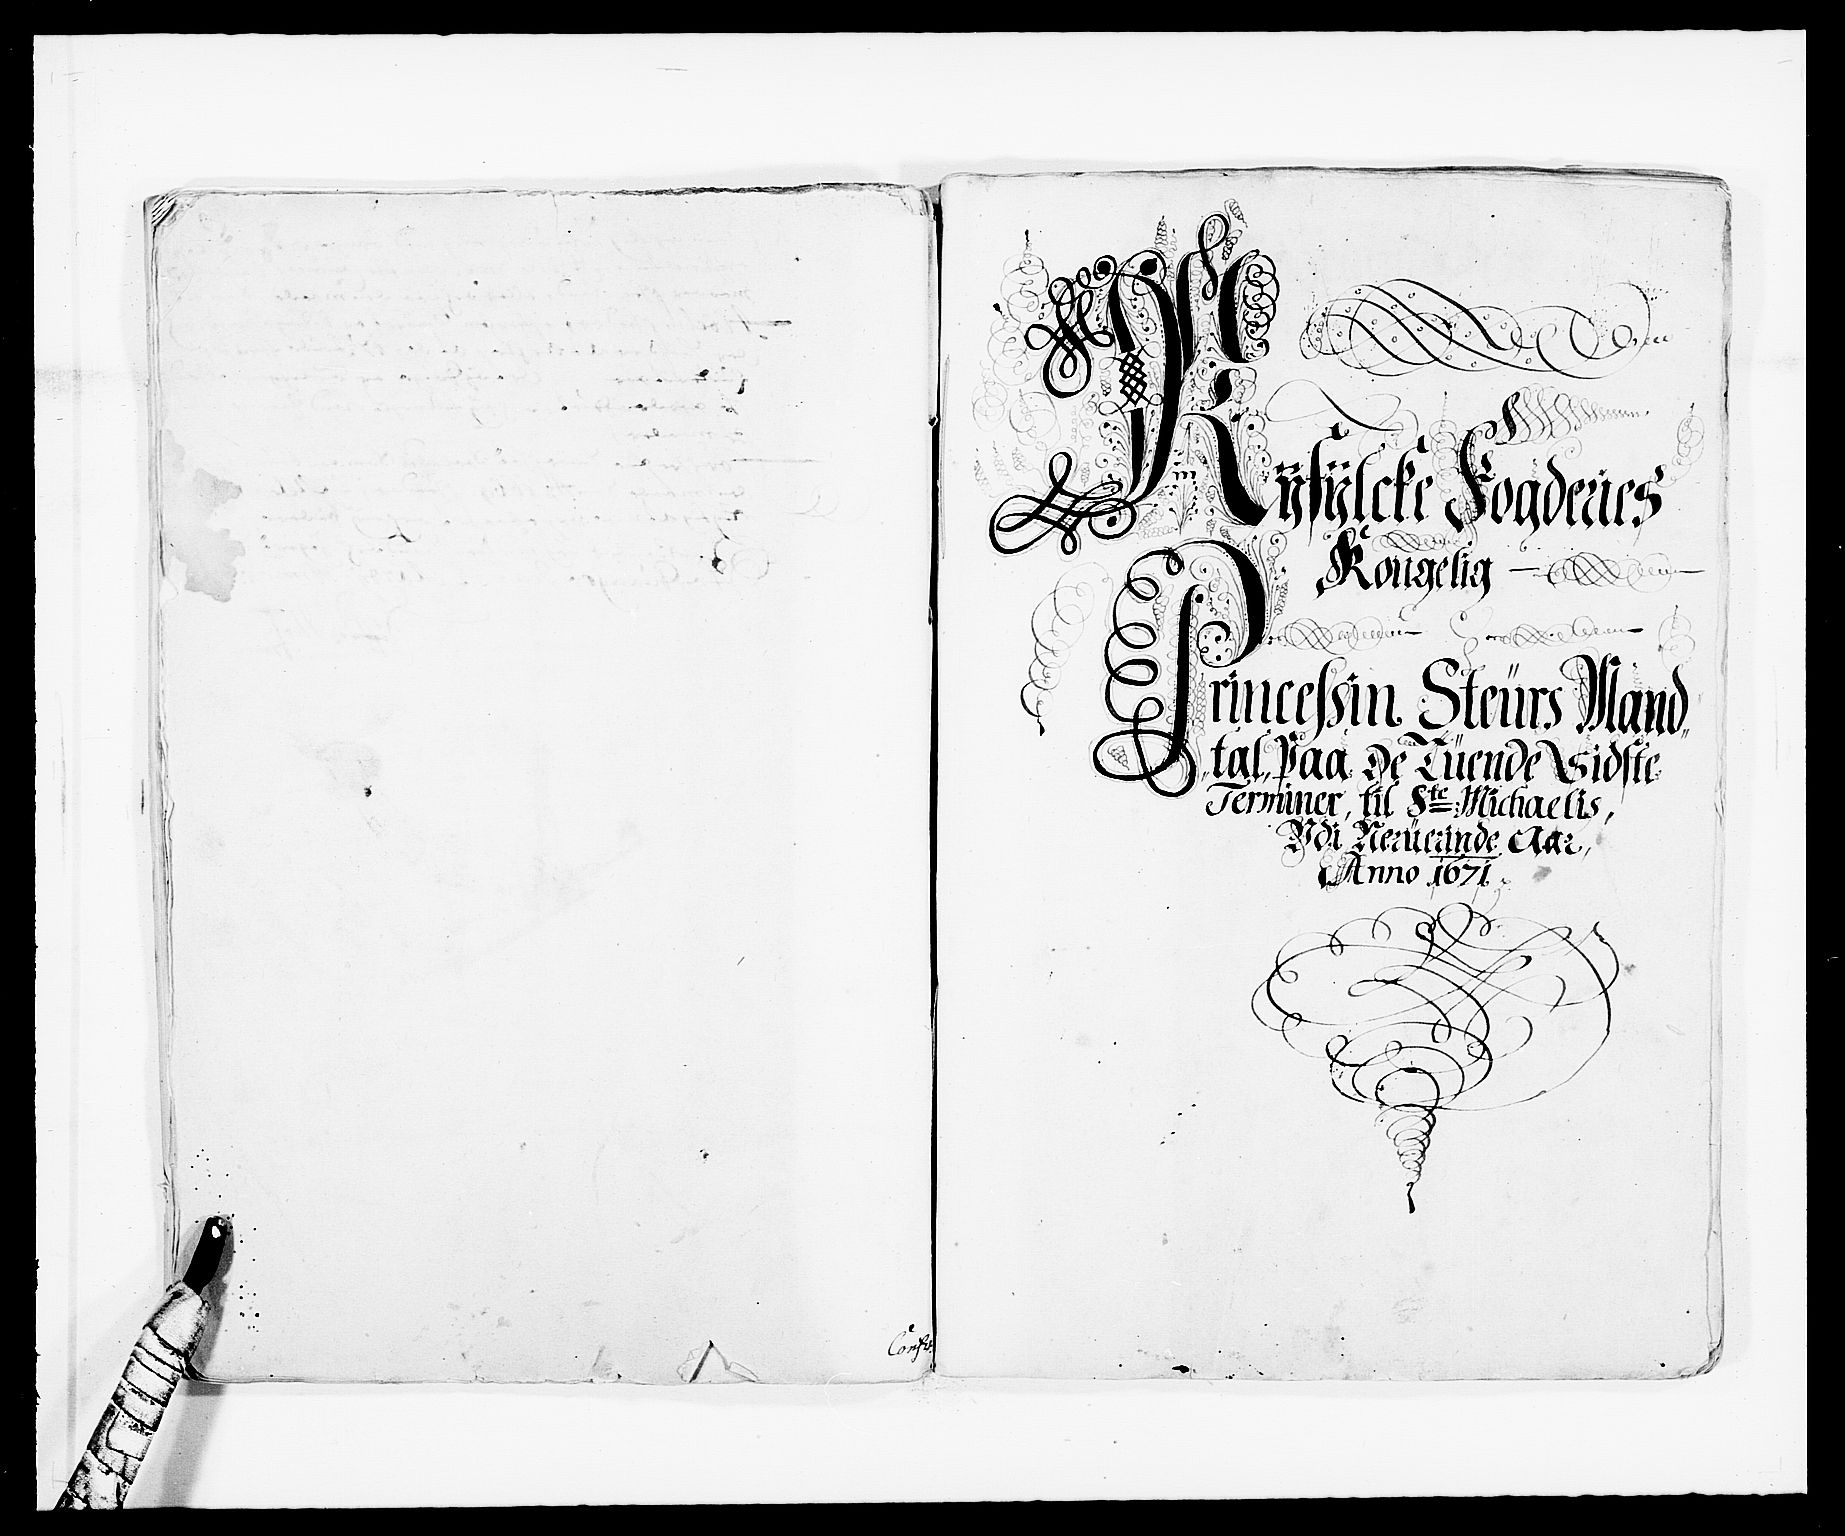 Rÿfÿlcke Fogderies
Kongelig
Princessin Steürs Mand„
„tal, paa de Tüende Sidste
Terminer, til Ste Michaelis,
Vdi Nerüerinde Aar,
Anno 1671.